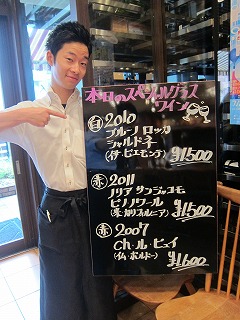 本日のスペシャルグラス
ワイン
白 2010
ブルーノ ロッカ
シャルドネ
(伊・ピエモンテ) ¥1500
赤 2011
ノリア サンジャコモ
ピノノワール
(米・カリフォルニア) ¥1500
赤 2007
Ch・ル・ピュイ
(仏・ボルドー) ¥1600